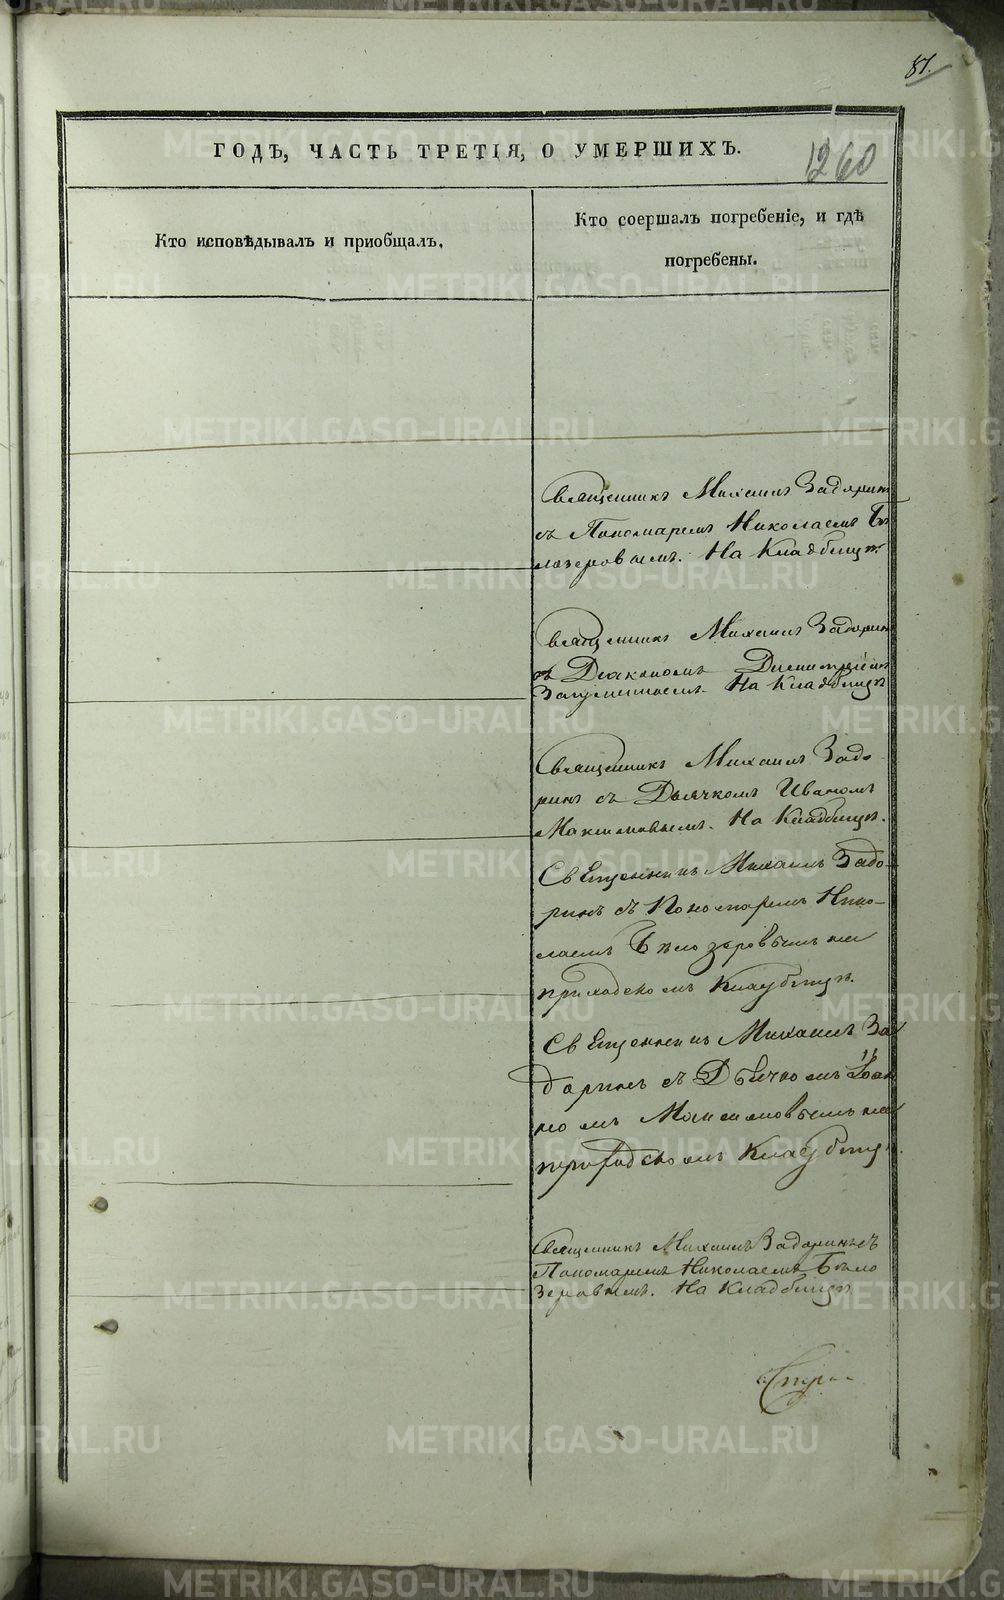 87.
ГОДЪ, ЧАСТЬ ТРЕТІЯ, О УМЕРШИХЪ.
1260
Кто исповѣдывалъ и приобщалъ.
Кто соершалъ погребеніе, и гдѣ
погребены.
Священникъ Михаилъ Задоринъ
съ Пономаремъ Николаемъ Бѣ
лозеровымъ. На Кладбищѣ.
Священникъ Михаилъ Задоринъ
съ Діакономъ Димитріемъ
На Кладбищѣ
Священникъ Михаилъ Задо-
ринъ съ Дьячкомъ Иваномъ
Максимовымъ. На Кладбищѣ.
Священникъ Михаилъ Задо-
ринъ съ Пономаремъ Нико-
лаемъ Бѣлозеровымъ на
приходскомъ Кладбищѣ.
Священникъ Михаилъ За
доринъ съ Дьячкомъ Іоан
номъ Максимовымъ на
приходскомъ Кладбищѣ.
Священникъ Михаилъ Задоринъ съ
Пономаремъ Николаемъ Бѣло
зеровымъ. На Кладбищѣ
METRIKI.GASO-URAL.RU